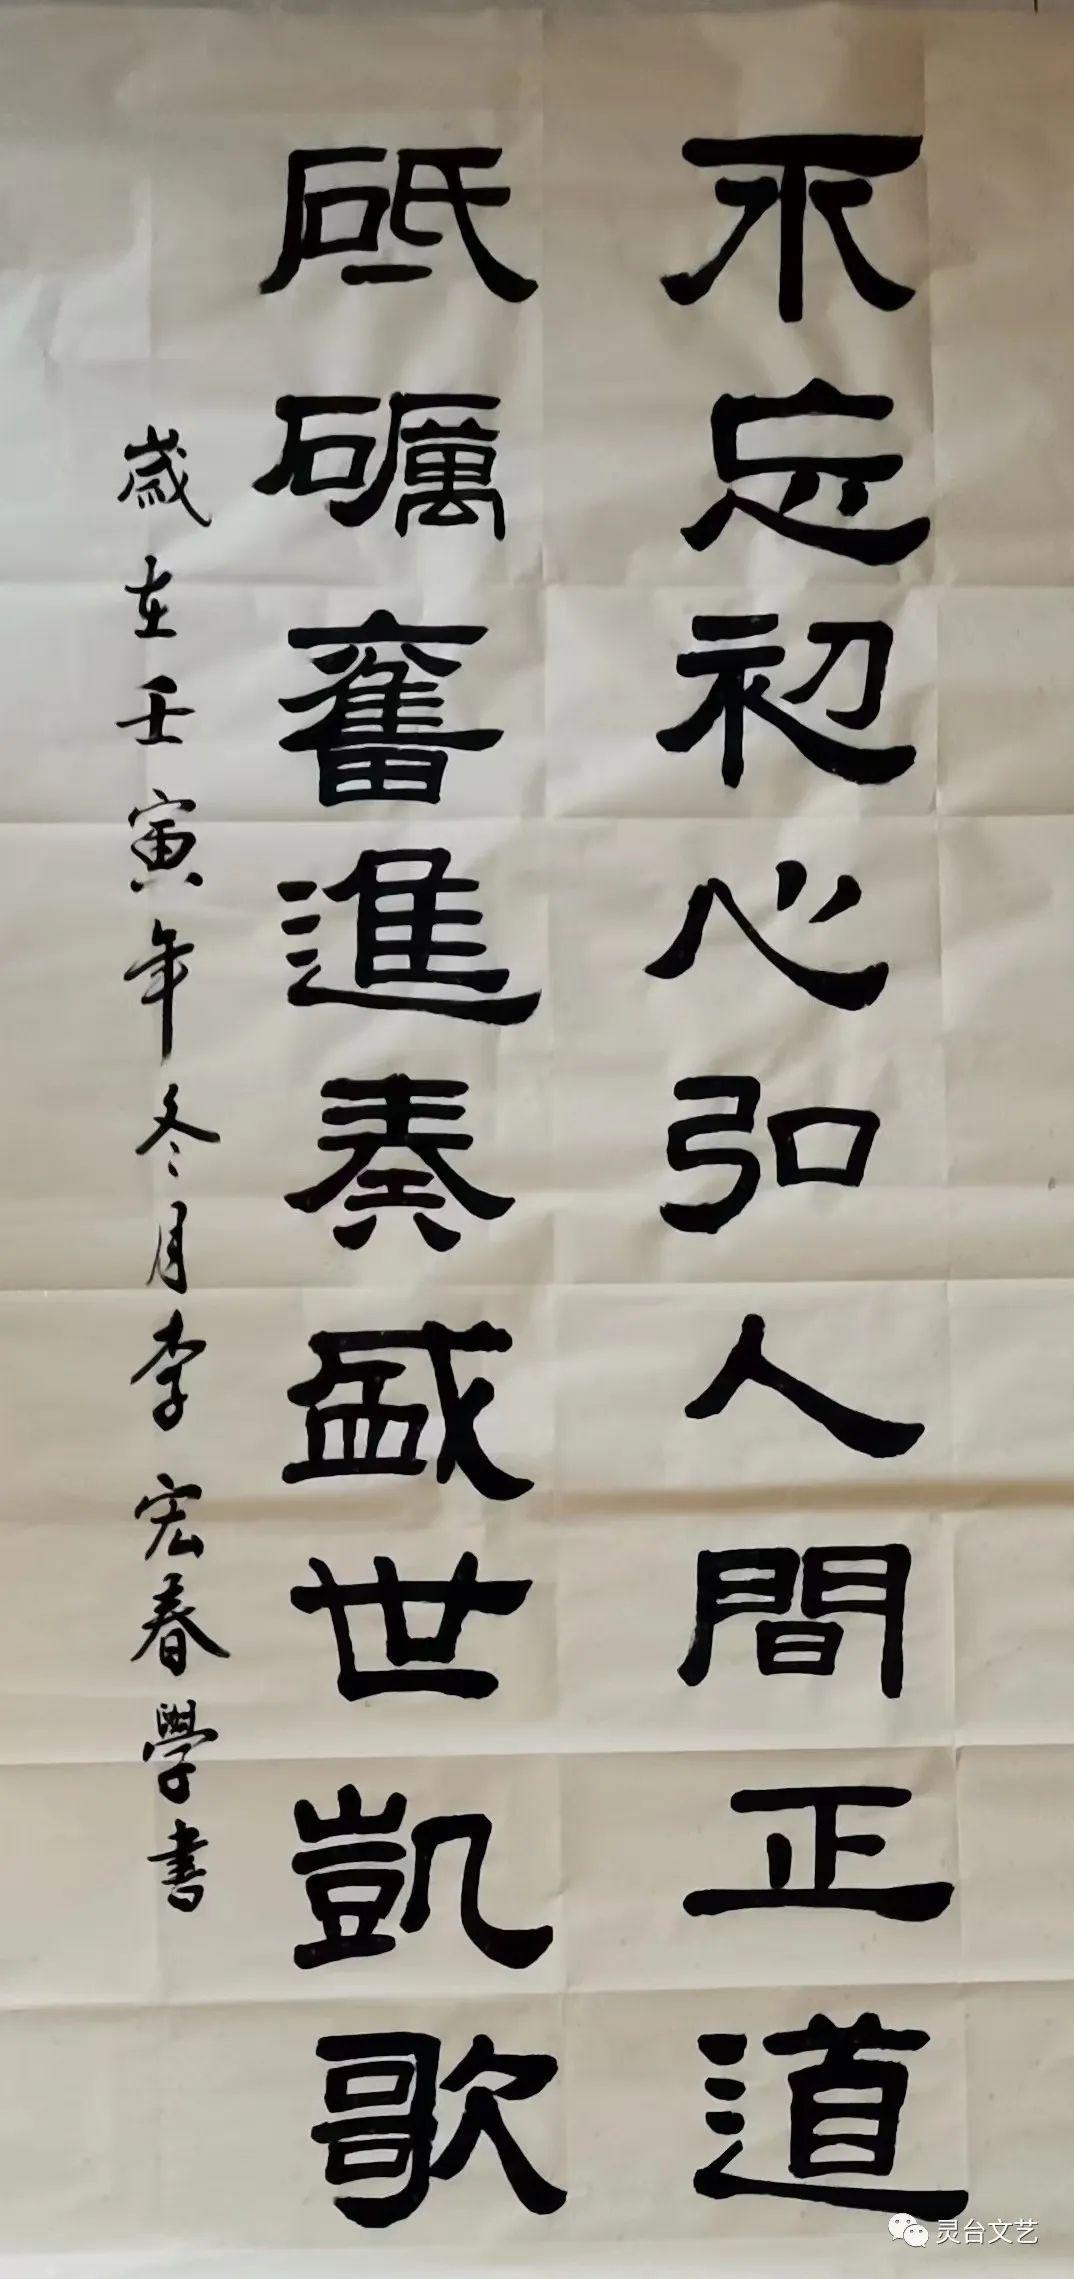 不忘初心弘人間正道
砥礪奮進奏盛世凱歌
歲在壬寅年冬月李宏春學書
灵台文艺